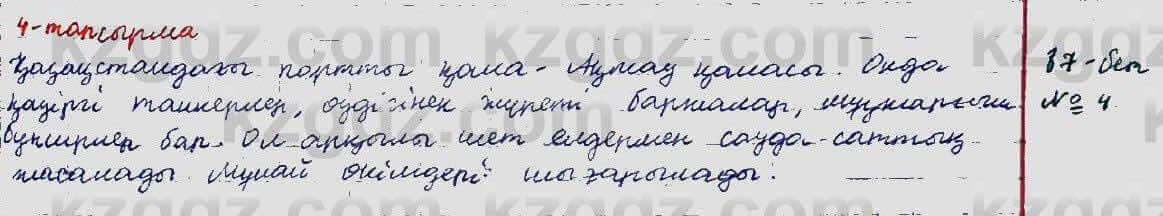 4-тапсырма
Қазақстандағы портты қала - Ақтау қаласы. Онда 87-бет
қазіргі танкерлер, өздігінен жүретін баржалар, №4
бункерлер бар. Ол арқылы шет елдермен сауда-саттық
жасалады. Мұнай өнімдері шығарылады.